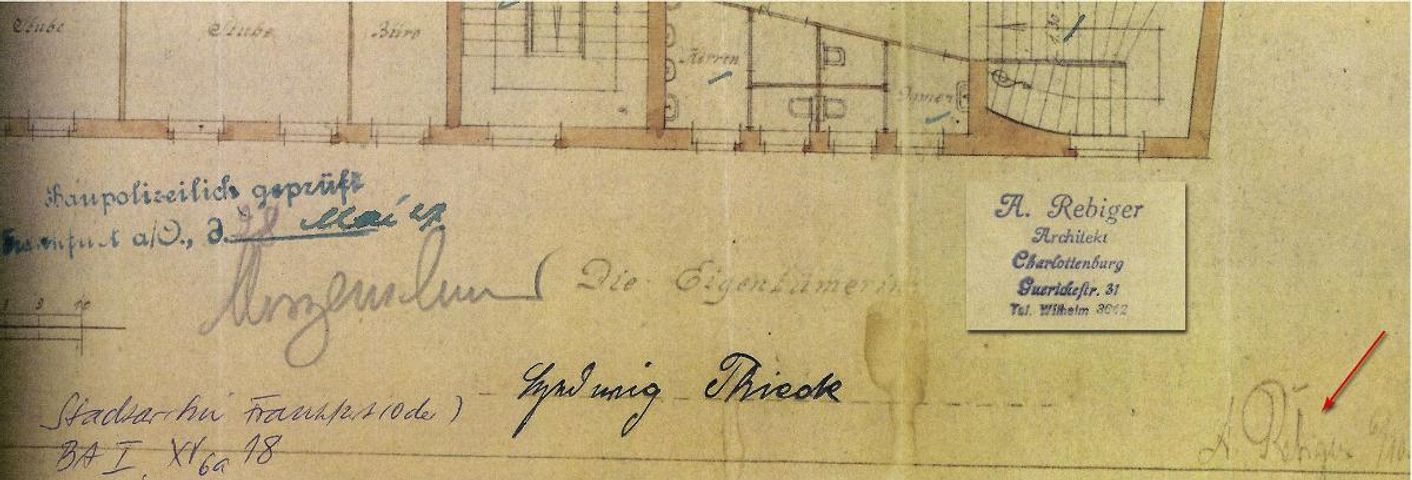 Stube
Stube
Büro
Herren
Damen
1,30
Baupolizeilich geprüft
Frankfurt a/O., d. Mai
Die Eigentümerin
A. Rebiger
Architekt
Charlottenburg
Guerickestr. 31
Tel. Wilhelm 3612
Hedwig Thieck
Stadtarchiv Frankfurt (Oder)
BA I, XV 6a 18
A Rebiger